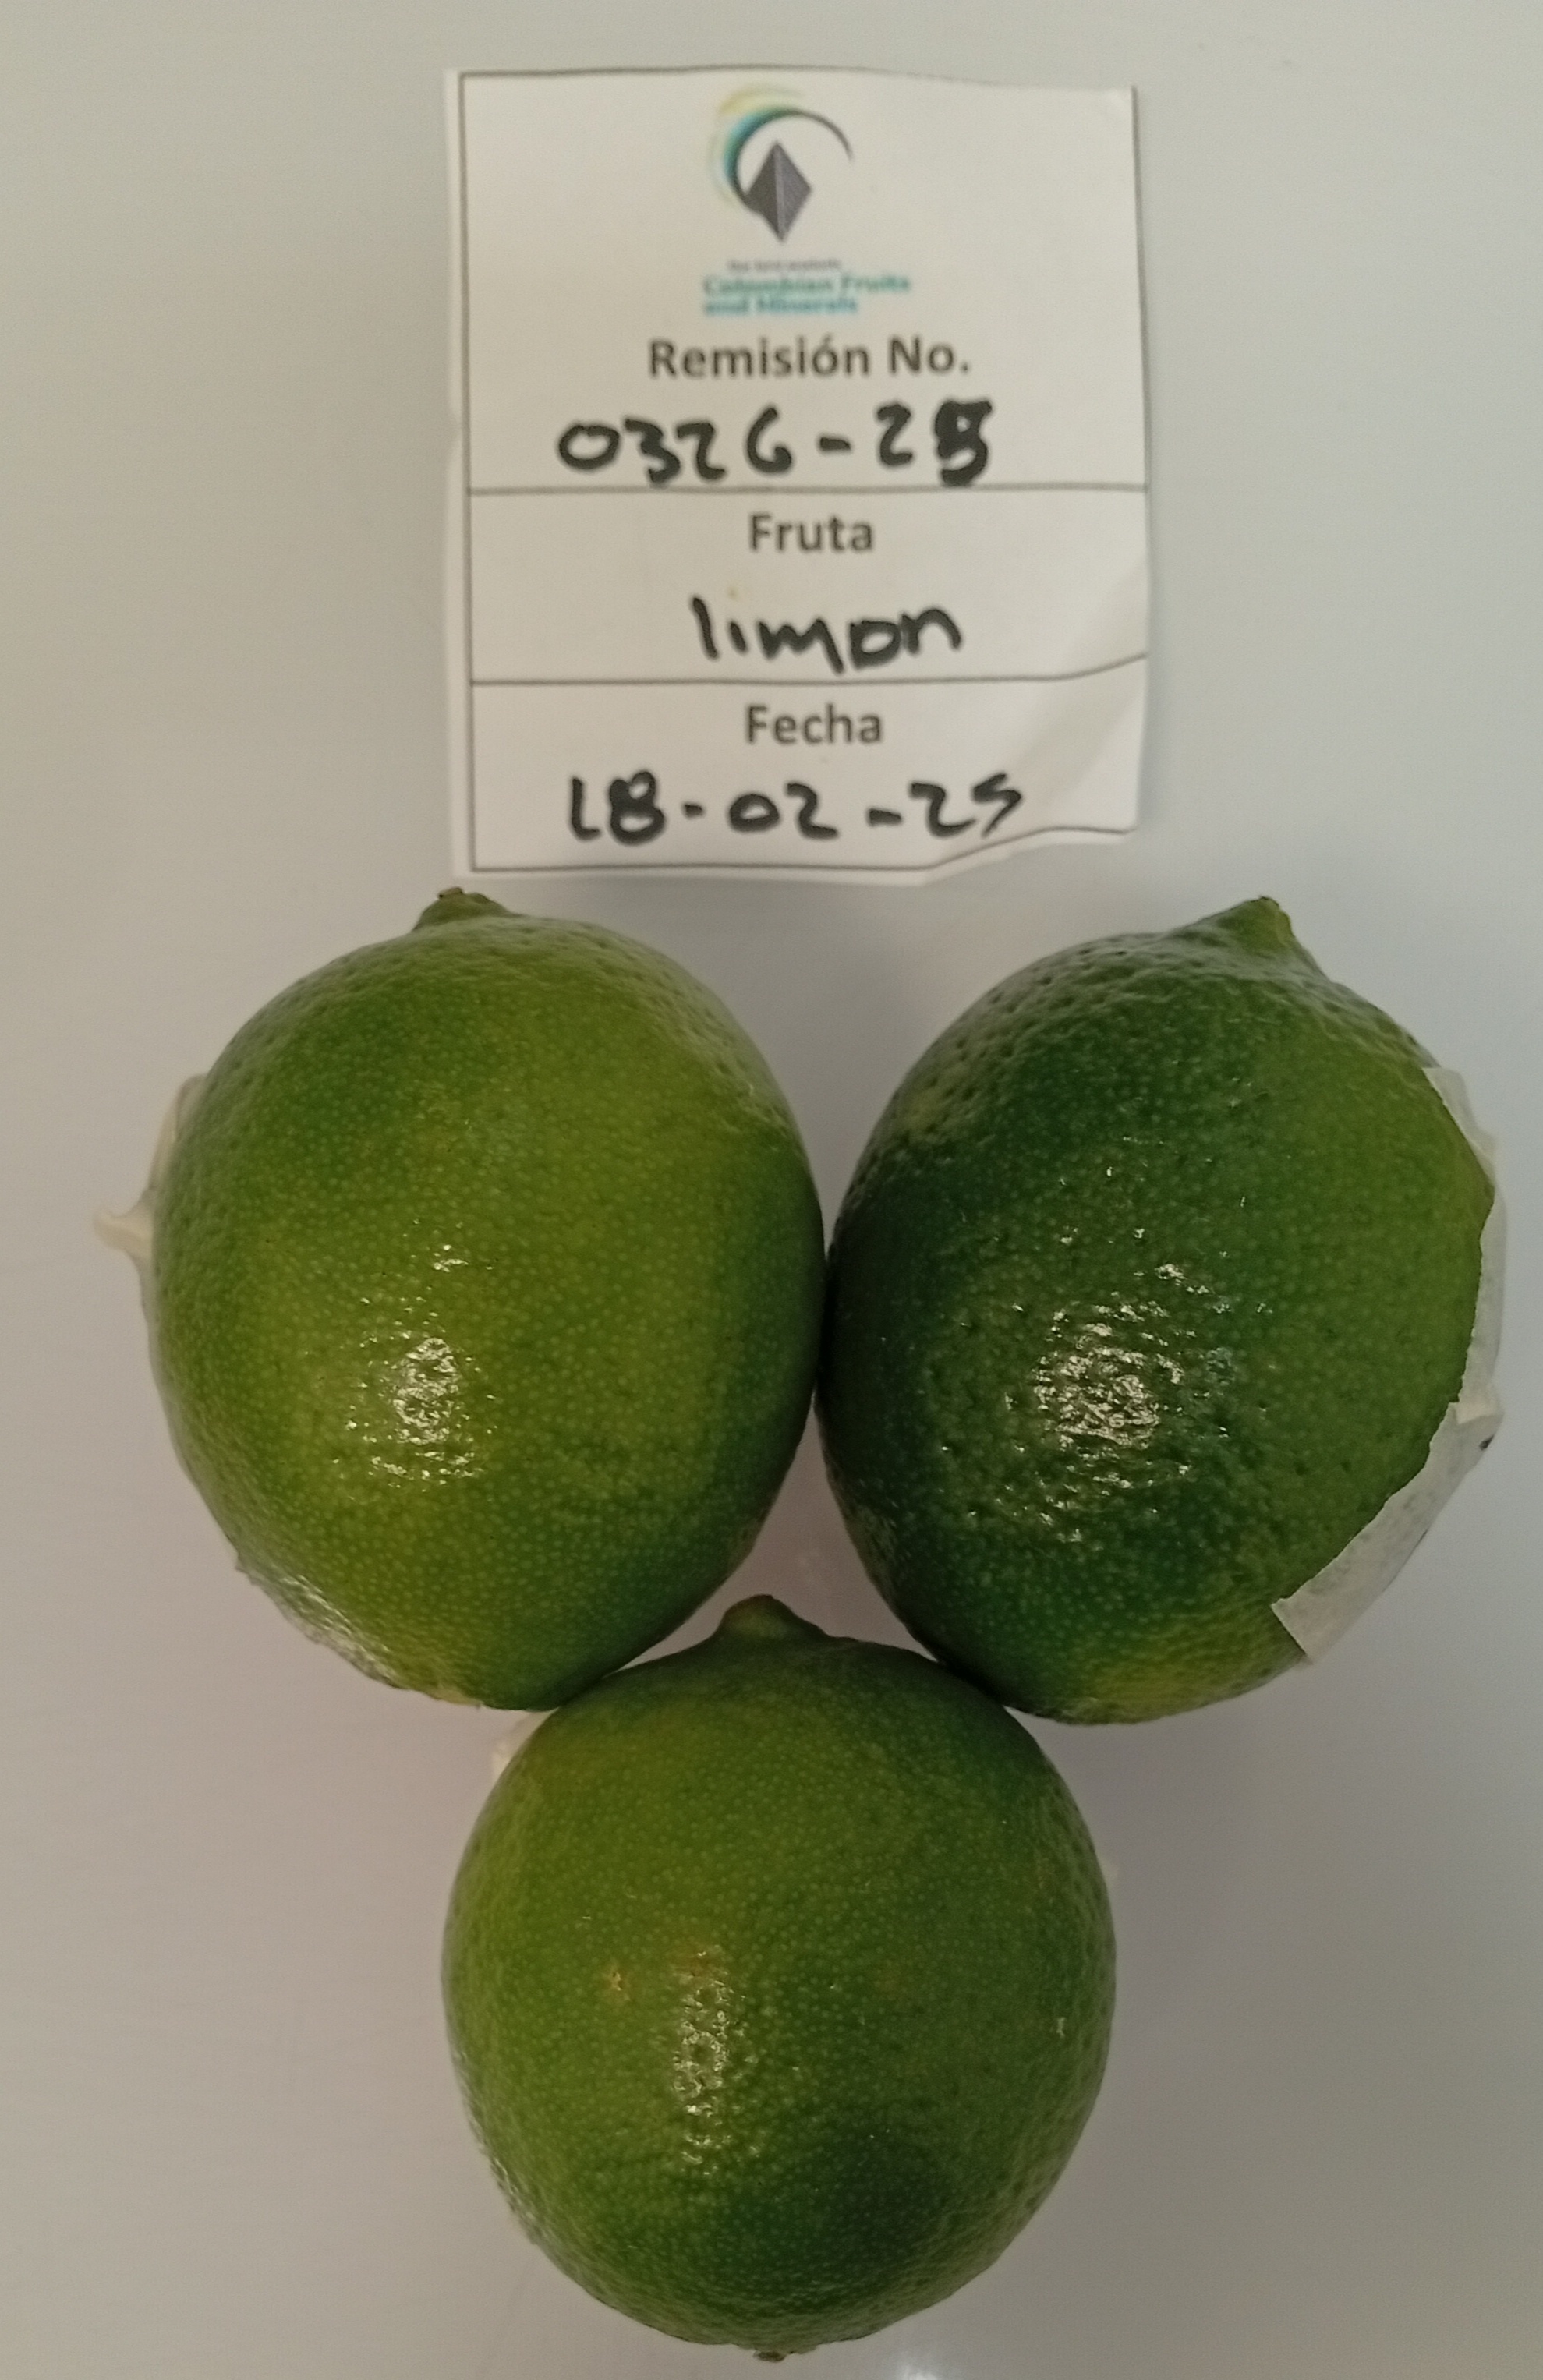 Colombian Fruits
and Minerals
Remisión No.
0326-25
Fruta
limon
Fecha
18-02-25